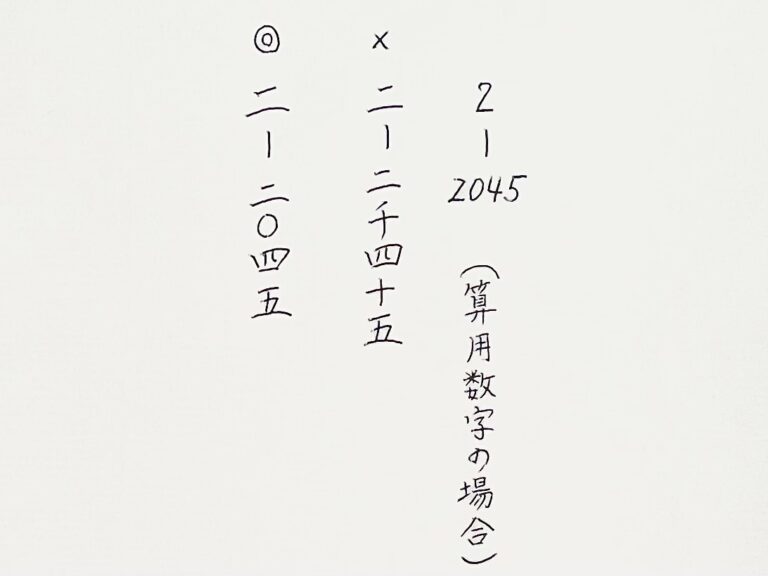 2｜2045 （算用数字の場合）
× 二｜二千四十五
◎ 二｜二〇四五